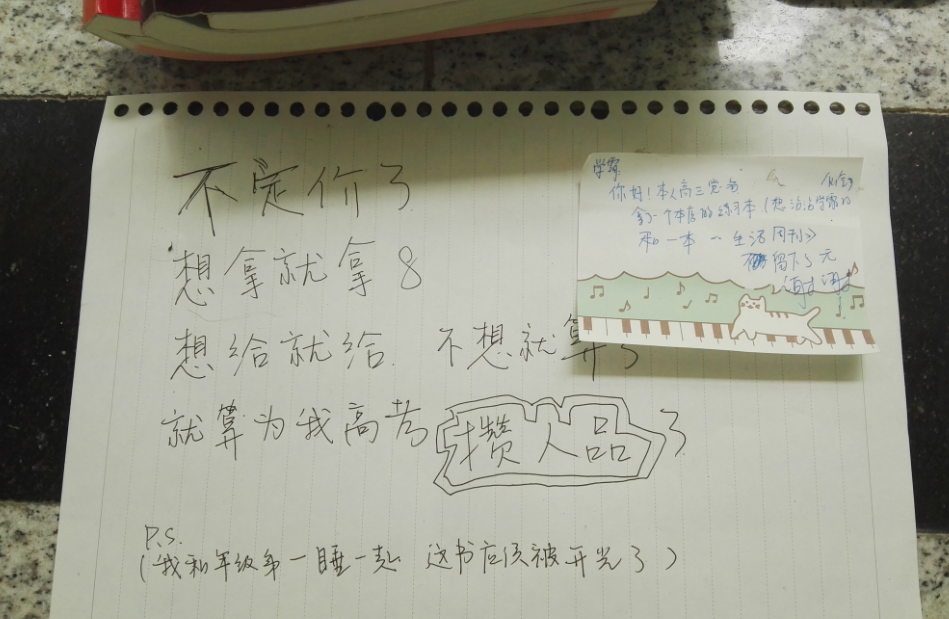 不定价了
想拿就拿8
想给就给 不想就算了
就算为我高考攒人品了
P.S.
(我和年级第一睡一起 这书应该被开光了)
学霸
你好!本人高三党
拿了一个本店的练习本(想沾沾学霸的
和一本 生活周刊》
留下5元
谢谢!